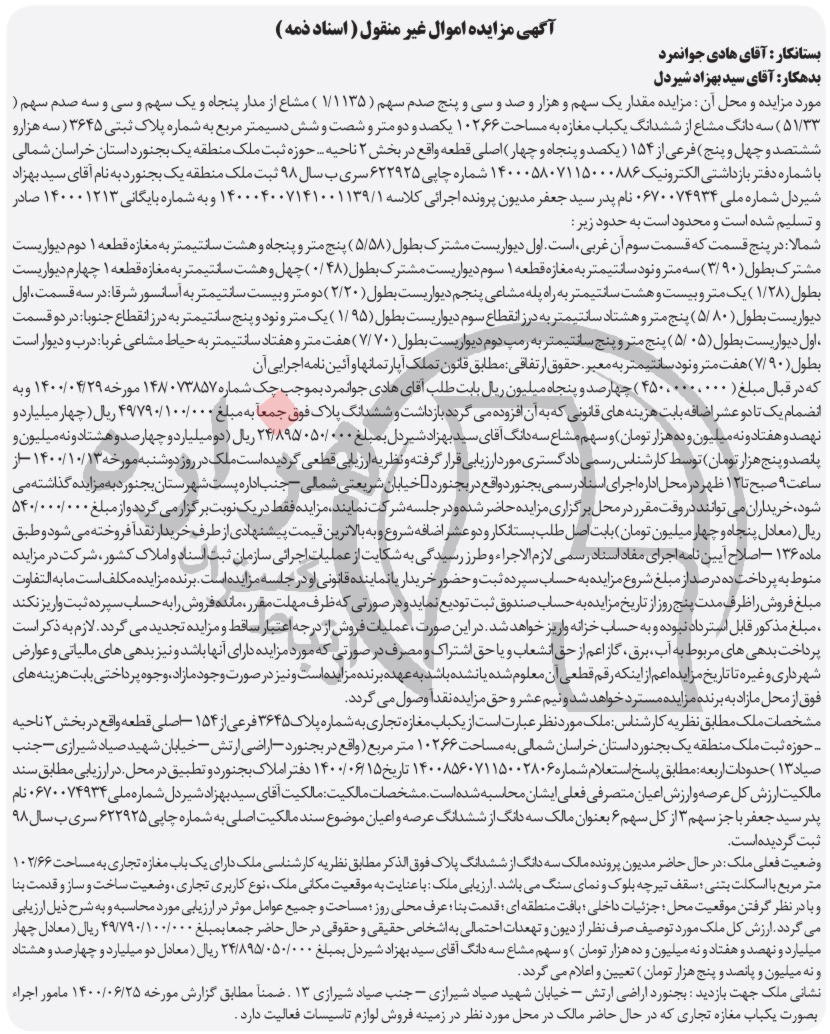 آگهی مزایده اموال غیر منقول ( اسناد ذمه )
بستانکار : آقای هادی جوانمرد
بدهکار: آقای سید بهزاد شیردل
مورد مزایده و محل آن : مزایده مقدار یک سهم و هزار و صد و سی و پنج صدم سهم ( ۱/۱۱۳۵ ) مشاع از مدار پنجاه و یک سهم و سی و سه صدم سهم (
۵۱/۳۳ ) سه دانگ مشاع از ششدانگ یکباب مغازه به مساحت ۱۰۲,۶۶ یکصد و دو متر و شصت و شش دسیمتر مربع به شماره پلاک ثبتی ۳۶۴۵ ( سه هزار و
ششتصد و چهل و پنج) فرعی از ۱۵۴ ( یکصد و پنجاه و چهار) اصلی قطعه واقع در بخش ۲ ناحیه ... حوزه ثبت ملک منطقه یک بجنورد استان خراسان شمالی
با شماره دفتر بازداشتی الکترونیک ۱۴۰۰۰۵۸۰۷۱۱۵۰۰۰۸۸۶ شماره چاپی ۶۲۲۹۲۵ سری ب سال ۹۸ ثبت ملک منطقه یک بجنورد به نام آقای سید بهزاد
شیردل شماره ملی ۰۶۷۰۰۷۴۹۳۴ نام پدر سید جعفر مدیون پرونده اجرائی کلاسه ۱۴۰۰۰۴۰۰۷۱۴۱۰۰۱۱۳۹/۱ و به شماره بایگانی ۱۴۰۰۰۱۲۱۳ صادر
و تسلیم شده است و محدود است به حدود زیر :
شمالا: در پنج قسمت که قسمت سوم آن غربی، است. اول دیواریست مشترک بطول (۵/۵۸) پنج متر و پنجاه و هشت سانتیمتر به مغازه قطعه ۱ دوم دیواریست
مشترک بطول (۳/۹۰) سه متر و نود سانتیمتر به مغازه قطعه ۱ سوم دیواریست مشترک بطول (۰/۴۸) چهل و هشت سانتیمتر به مغازه قطعه ۱ چهارم دیواریست
بطول (۱/۲۸) یک متر و بیست و هشت سانتیمتر به راه پله مشاعی پنجم دیواریست بطول (۲/۲۰) دو متر و بیست سانتیمتر به آسانسور شرقا: در سه قسمت، اول
دیواریست بطول (۵/۸۰) پنج متر و هشتاد سانتیمتر به درز انقطاع سوم دیواریست بطول (۱/۹۵) یک متر و نود و پنج سانتیمتر به درز انقطاع جنوبا: در دو قسمت
، اول دیواریست بطول (۵/۰۵) پنج متر و پنج سانتیمتر به رمپ دوم دیواریست بطول (۷/۷۰) هفت متر و هفتاد سانتیمتر به حیاط مشاعی غربا: درب و دیوار است
بطول (۷/۹۰) هفت متر و نود سانتیمتر به معبر. حقوق ارتفاقی: مطابق قانون تملک آپارتمانها و آئین نامه اجرایی آن
که در قبال مبلغ ( ۴۵۰,۰۰۰,۰۰۰ ) چهارصد و پنجاه میلیون ریال بابت طلب آقای هادی جوانمرد بموجب چک شماره ۱۴۸/۰۷۳۸۵۷ مورخه ۱۴۰۰/۰۴/۲۹ و به
انضمام یک تا دو عشر اضافه بابت هزینه های قانونی که به آن افزوده می گردد بازداشت و ششدانگ پلاک فوق جمعا به مبلغ ۴۹/۷۹۰/۱۰۰/۰۰۰ ریال (چهار میلیارد و
نهصد و هفتاد و نه میلیون و ده هزار تومان) و سهم مشاع سه دانگ آقای سید بهزاد شیردل بمبلغ ۲۴/۸۹۵/۰۵۰/۰۰۰ ریال (دو میلیارد و چهارصد و هشتاد و نه میلیون و
پانصد و پنج هزار تومان) توسط کارشناس رسمی دادگستری مورد ارزیابی قرار گرفته و نظریه ارزیابی قطعی گردیده است ملک در روز دوشنبه مورخه ۱۴۰۰/۱۰/۱۳ –از
ساعت ۹ صبح تا ۱۲ ظهر در محل اداره اجرای اسناد رسمی بجنورد واقع در بجنورد خیابان شریعتی شمالی –جنب اداره پست شهرستان بجنورد به مزایده گذاشته می
شود، خریداران می توانند در وقت مقرر در محل برگزاری مزایده حاضر شده و در جلسه شرکت نمایند، مزایده فقط در یک نوبت برگزار می گردد و از مبلغ ۵۴۰/۰۰۰/۰۰۰
ریال (معادل پنجاه و چهار میلیون تومان) بابت اصل طلب بستانکار و دو عشر اضافه شروع و به بالاترین قیمت پیشنهادی از طرف خریدار نقداً فروخته می شود و طبق
ماده ۱۳۶ –اصلاح آیین نامه اجرای مفاد اسناد رسمی لازم الاجراء و طرز رسیدگی به شکایت از عملیات اجرائی سازمان ثبت اسناد و املاک کشور ، شرکت در مزایده
منوط به پرداخت ده درصد از مبلغ شروع مزایده به حساب سپرده ثبت و حضور خریدار یا نماینده قانونی او در جلسه مزایده است. برنده مزایده مکلف است مابه التفاوت
مبلغ فروش را ظرف مدت پنج روز از تاریخ مزایده به حساب صندوق ثبت تودیع نماید و در صورتی که ظرف مهلت مقرر، مانده فروش را به حساب سپرده ثبت واریز نکند
، مبلغ مذکور قابل استرداد نبوده و به حساب خزانه واریز خواهد شد. در این صورت، عملیات فروش از درجه اعتبار ساقط و مزایده تجدید می گردد. لازم به ذکر است
پرداخت بدهی های مربوط به آب، برق، گاز اعم از حق انشعاب و یا حق اشتراک و مصرف در صورتی که مورد مزایده دارای آنها باشد و نیز بدهی های مالیاتی و عوارض
شهرداری و غیره تا تاریخ مزایده اعم از اینکه رقم قطعی آن معلوم شده یا نشده باشد به عهده برنده مزایده است و نیز در صورت وجود مازاد، وجوه پرداختی بابت هزینه های
فوق از محل مازاد به برنده مزایده مسترد خواهد شد و نیم عشر و حق مزایده نقدا وصول می گردد.
مشخصات ملک مطابق نظریه کارشناس: ملک مورد نظر عبارت است از یکباب مغازه تجاری به شماره پلاک ۳۶۴۵ فرعی از ۱۵۴ –اصلی قطعه واقع در بخش ۲ ناحیه
... حوزه ثبت ملک منطقه یک بجنورد استان خراسان شمالی به مساحت ۱۰۲,۶۶ متر مربع (واقع در بجنورد –اراضی ارتش –خیابان شهید صیاد شیرازی –جنب
صیاد ۱۳ ) حدودات اربعه: مطابق پاسخ استعلام شماره ۱۴۰۰۸۵۶۰۷۱۱۵۰۰۲۸۰۶ تاریخ ۱۴۰۰/۰۶/۱۵ دفتر املاک بجنورد و تطبیق در محل. در ارزیابی مطابق سند
مالکیت ارزش کل عرصه و ارزش اعیان متصرفی فعلی ایشان محاسبه شده است. مشخصات مالکیت: مالکیت آقای سید بهزاد شیردل شماره ملی ۰۶۷۰۰۷۴۹۳۴ نام
پدر سید جعفر با جز سهم ۳ از کل سهم ۶ بعنوان مالک سه دانگ از ششدانگ عرصه و اعیان موضوع سند مالکیت اصلی به شماره چاپی ۶۲۲۹۲۵ سری ب سال ۹۸
ثبت گردیده است.
وضعیت فعلی ملک : در حال حاضر مدیون پرونده مالک سه دانگ از ششدانگ پلاک فوق الذکر مطابق نظریه کارشناسی ملک دارای یک باب مغازه تجاری به مساحت ۱۰۲/۶۶
متر مربع با اسکلت بتنی ؛ سقف تیرچه بلوک و نمای سنگ می باشد. ارزیابی ملک : با عنایت به موقعیت مکانی ملک ، نوع کاربری تجاری ، وضعیت ساخت و ساز و قدمت بنا
و با در نظر گرفتن موقعیت محل ؛ جزئیات داخلی ؛ بافت منطقه ای ؛ قدمت بنا ؛ عرف محلی روز ؛ مساحت و جمیع عوامل موثر در ارزیابی مورد محاسبه و به شرح ذیل ارزیابی
می گردد. ارزش کل ملک مورد توصیف صرف نظر از دیون و تهعدات احتمالی به اشخاص حقیقی و حقوقی در حال حاضر جمعا بمبلغ ۴۹/۷۹۰/۱۰۰/۰۰۰ ریال (معادل چهار
میلیارد و نهصد و هفتاد و نه میلیون و ده هزار تومان ) و سهم مشاع سه دانگ آقای سید بهزاد شیردل بمبلغ ۲۴/۸۹۵/۰۵۰/۰۰۰ ریال (معادل دو میلیارد و چهارصد و هشتاد
و نه میلیون و پانصد و پنج هزار تومان ) تعیین و اعلام می گردد .
نشانی ملک جهت بازدید : بجنورد اراضی ارتش – خیابان شهید صیاد شیرازی – جنب صیاد شیرازی ۱۳ . ضمناً مطابق گزارش مورخه ۱۴۰۰/۰۶/۲۵ مامور اجراء
بصورت یکباب مغازه تجاری که در حال حاضر مالک در محل مورد نظر در زمینه فروش لوازم تاسیسات فعالیت دارد .